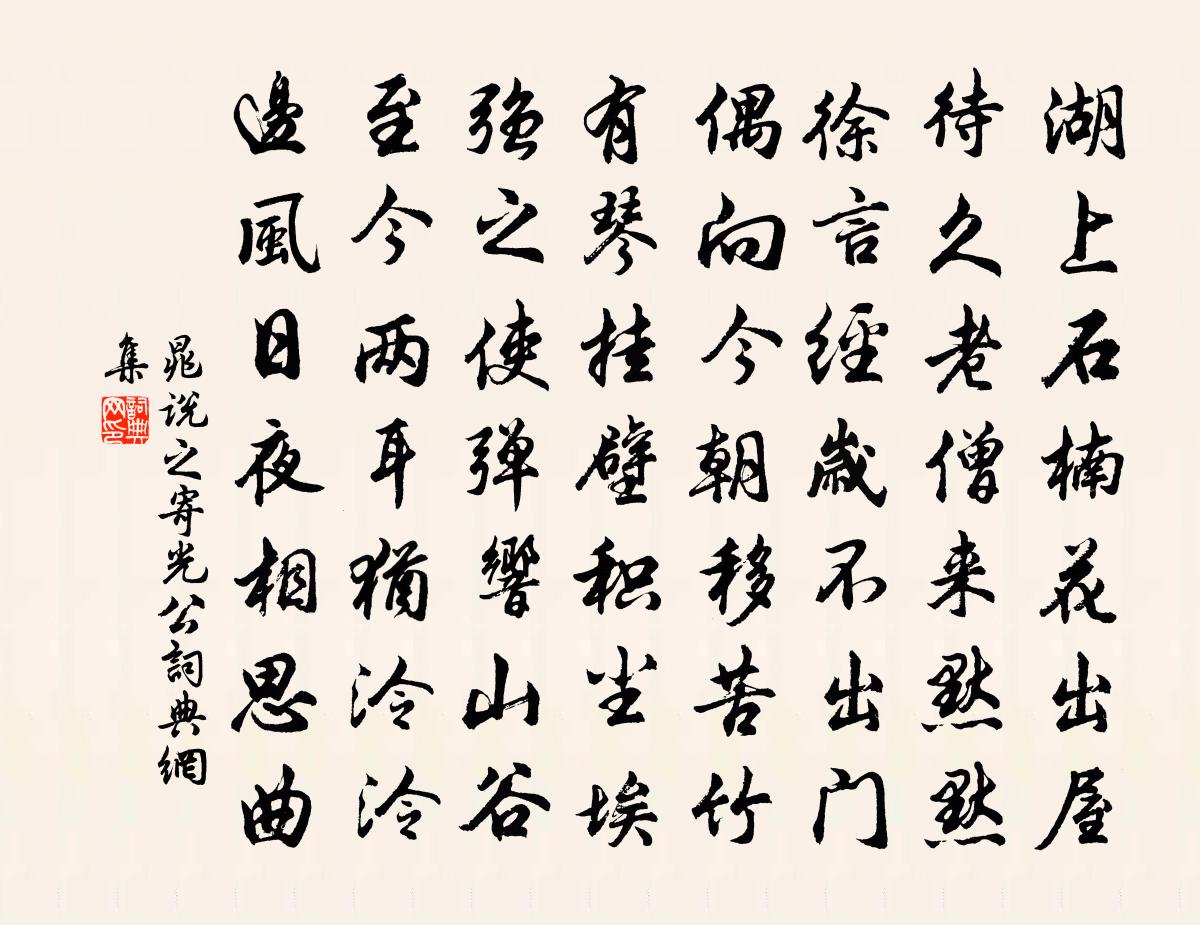 湖上石楠花出屋
待久老僧来黙黙
徐言經歲不出门
偶向今朝移苦竹
有琴挂壁积尘埃
强之使弹響山谷
至今两耳犹泠泠
邊風日夜相思曲
晁说之寄光公詞典網
集
詞典网印